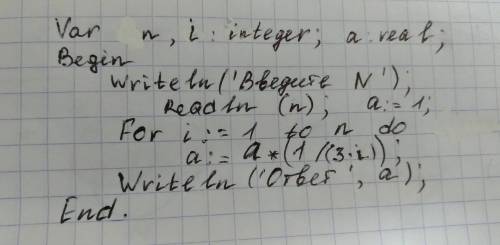 Var n, i : integer; a : real;
Begin
Writeln ('Введите N');
Readln (n); a := 1;
For i := 1 to n do
a := a * (1 / (3 · i));
Writeln ('Ответ', a);
End.